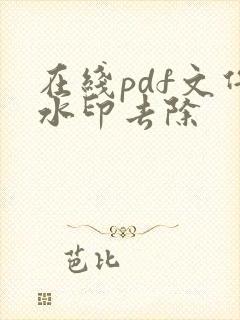 在线pdf文件
水印去除
芭比